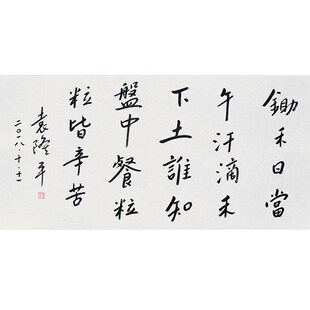 鋤禾日當
午汗滴禾
下土誰知
盤中餐粒
粒皆辛苦
袁隆平
二〇一八.十.十一